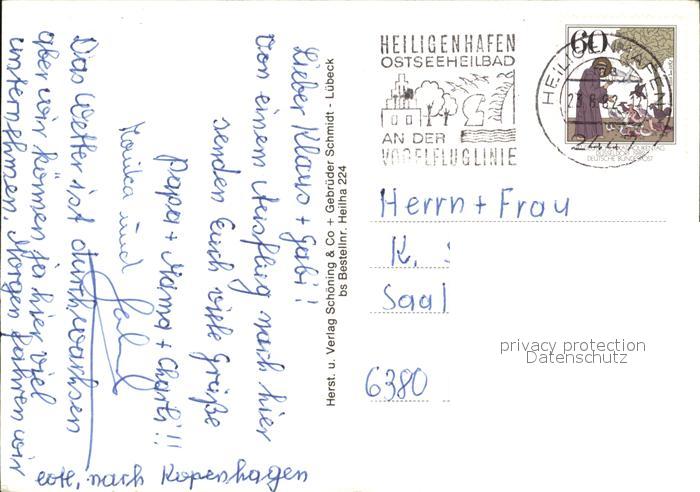 Lieber Klaus + Gabi!
Von einem Ausflug nach hier
senden Euch viele Grüße
Papa + Mama + Charli!!
und
Das Wetter ist durchwachsen
aber wir können ja hier viel
unternehmen. Morgen fahren wir
evtl. nach Kopenhagen
Herst. u. Verlag Schöning & Co + Gebrüder Schmidt - Lübeck
bs Bestellnr. Heilha 224
HEILIGENHAFEN
OSTSEEHEILBAD
AN DER
VOGELFLUGLINIE
60
DEUTSCHE BUNDESPOST
HEILIGENHAFEN
Herrn + Frau
K.
Saal
6380
privacy protection
Datenschutz